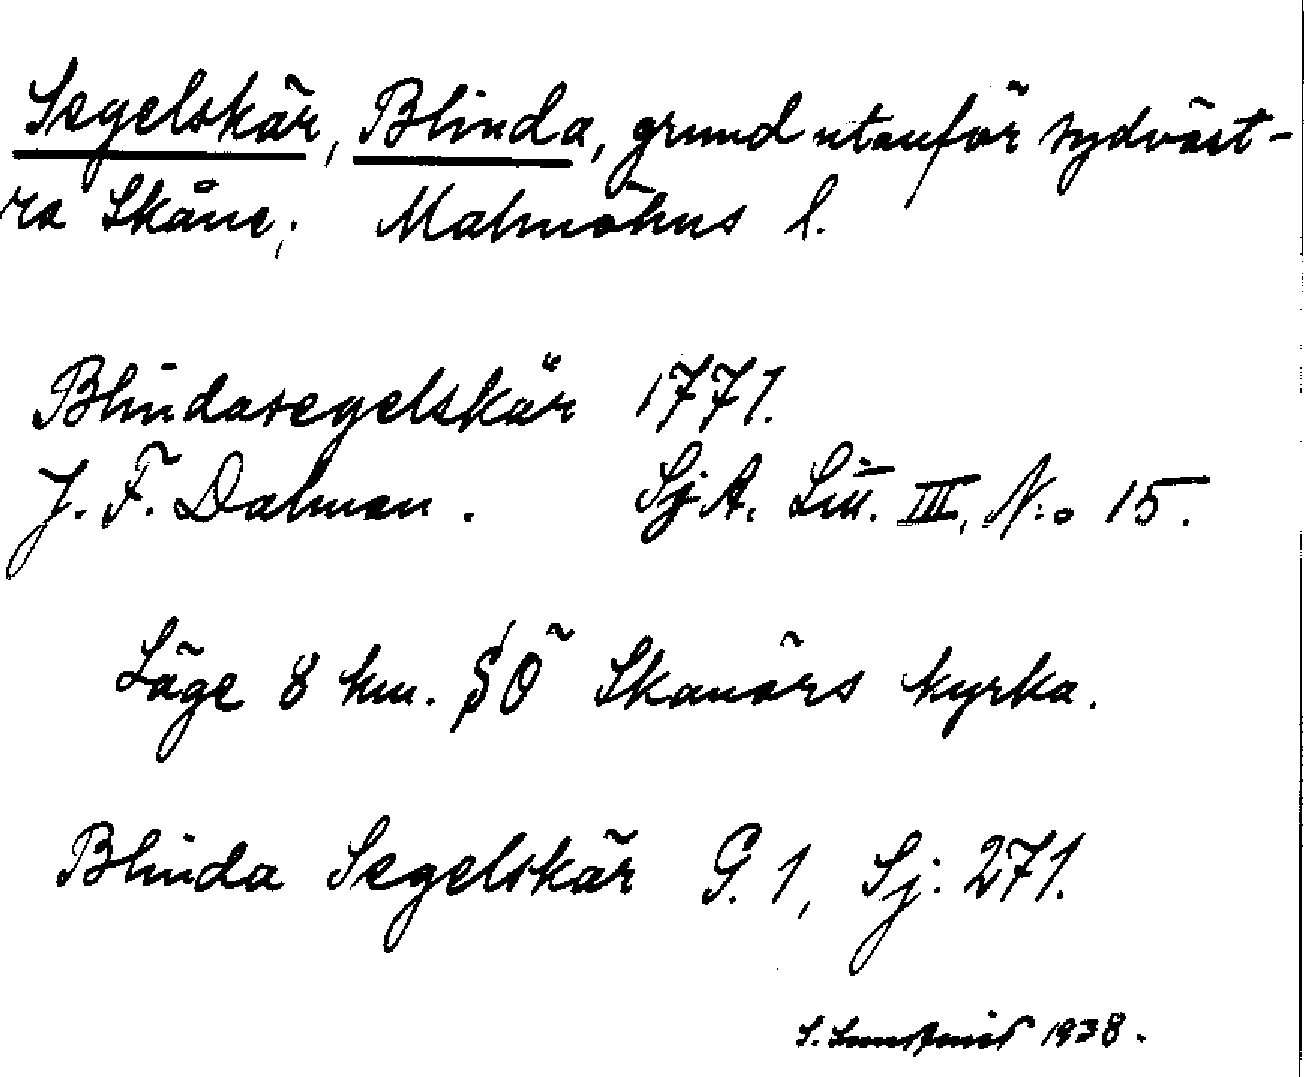 Segelskär, Blinda, grund utanför sydväst-
ra Skåne; Malmöhus l.
Blindasegelskär 1771.
J. F. Dalman. Sj.A. Litt. III, N:o 15.
Läge 8 km. SÖ Skanörs kyrka.
Blinda Segelskär G. 1, Sj: 271.
S. 1938.